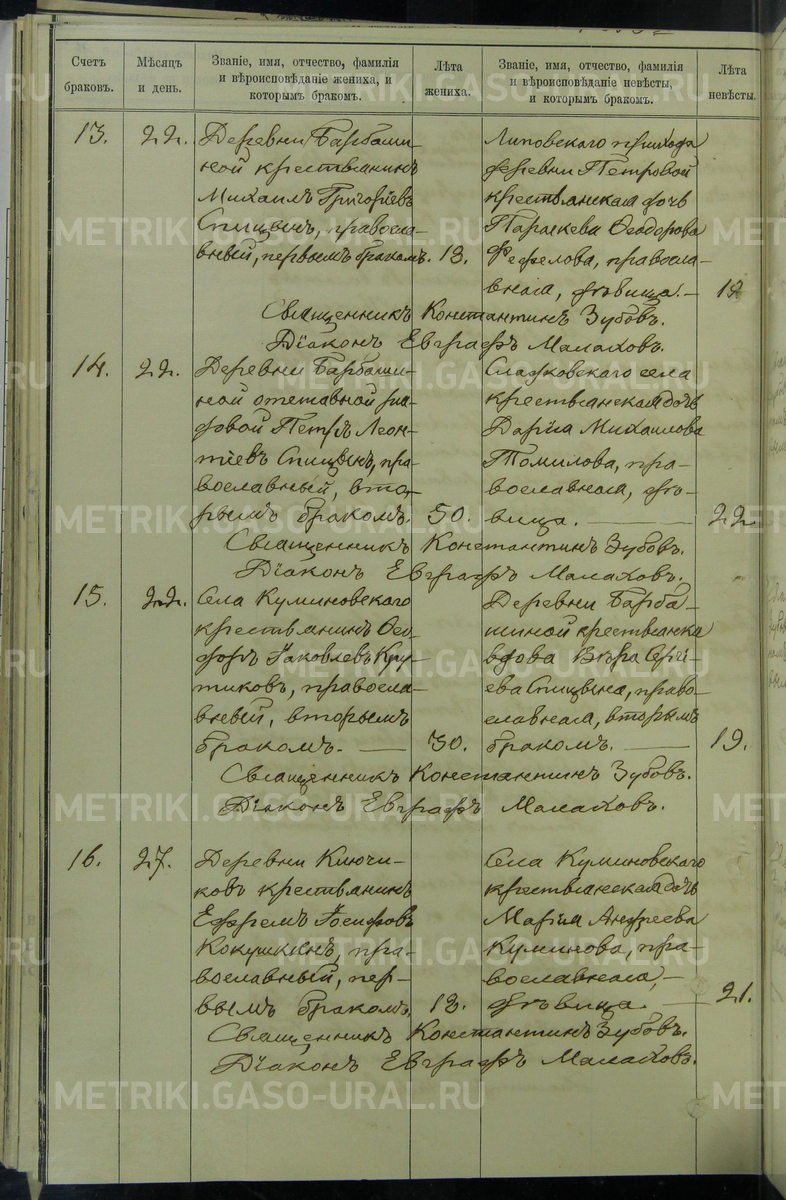 Счетъ браковъ.
Мѣсяцъ и день.
Званіе, имя, отчество, фамилія и вѣроисповѣданіе жениха, и которымъ бракомъ.
Лѣта жениха.
Званіе, имя, отчество, фамилія и вѣроисповѣданіе невѣсты, и которымъ бракомъ.
Лѣта невѣсты.
13.
22.
Деревни Барбаши-
ной крестьянинъ
Михаилъ Григорíевъ
Спицынъ, правосла-
вный, первымъ бракомъ.
18.
Липовскаго прихода
деревни Петровой
крестьянская дочь
Параскева Ѳеодорова
Фефелова, правосла-
вная, дѣвица.-
18
Священникъ Константинъ Зубовъ.
Діаконъ Евграфъ Малаховъ.
14.
22.
Деревни Барбаши-
ной отставной ря-
довой Петръ Леон-
тіевъ Спицынъ, пра-
вославный, вто-
рымъ бракомъ.
50.
Сладковскаго села
крестьянская дочь
Дарія Михаилова
Томилова, пра-
вославная, дѣ-
вица.
22
Священникъ Константинъ Зубовъ.
Діаконъ Евграфъ Малаховъ.
15.
22.
Села Куминовскаго
крестьянинъ Ѳео-
доръ Іаковлевъ Кру-
тиковъ, правосла-
вный, вторымъ
бракомъ.
30.
Деревни Барба-
шиной крестьянка
вдова Вѣра Сергі-
ева Спицына, право-
славная, вторымъ
бракомъ.
19.
Священникъ Константинъ Зубовъ.
Діаконъ Евграфъ Малаховъ.
16.
27.
Деревни Ключи-
ковъ крестьянинъ
Ефремъ Іосифовъ
Кокушкинъ, пра-
вославный, пер-
вымъ бракомъ.
18.
Села Куминовскаго
крестьянская дочь
Марія Андреева
Куминова, пра-
вославная,-
дѣвица.
21.
Священникъ Константинъ Зубовъ.
Діаконъ Евграфъ Малаховъ.
METRIKI.GASO-URAL.RU